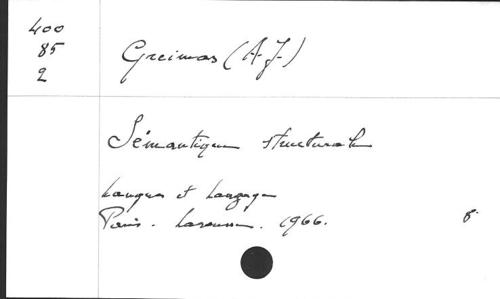 400
85
2
Greimas (A.J.)
Sémantique structurale
Langue et Langage
Paris. Larousse. 1966. 8°